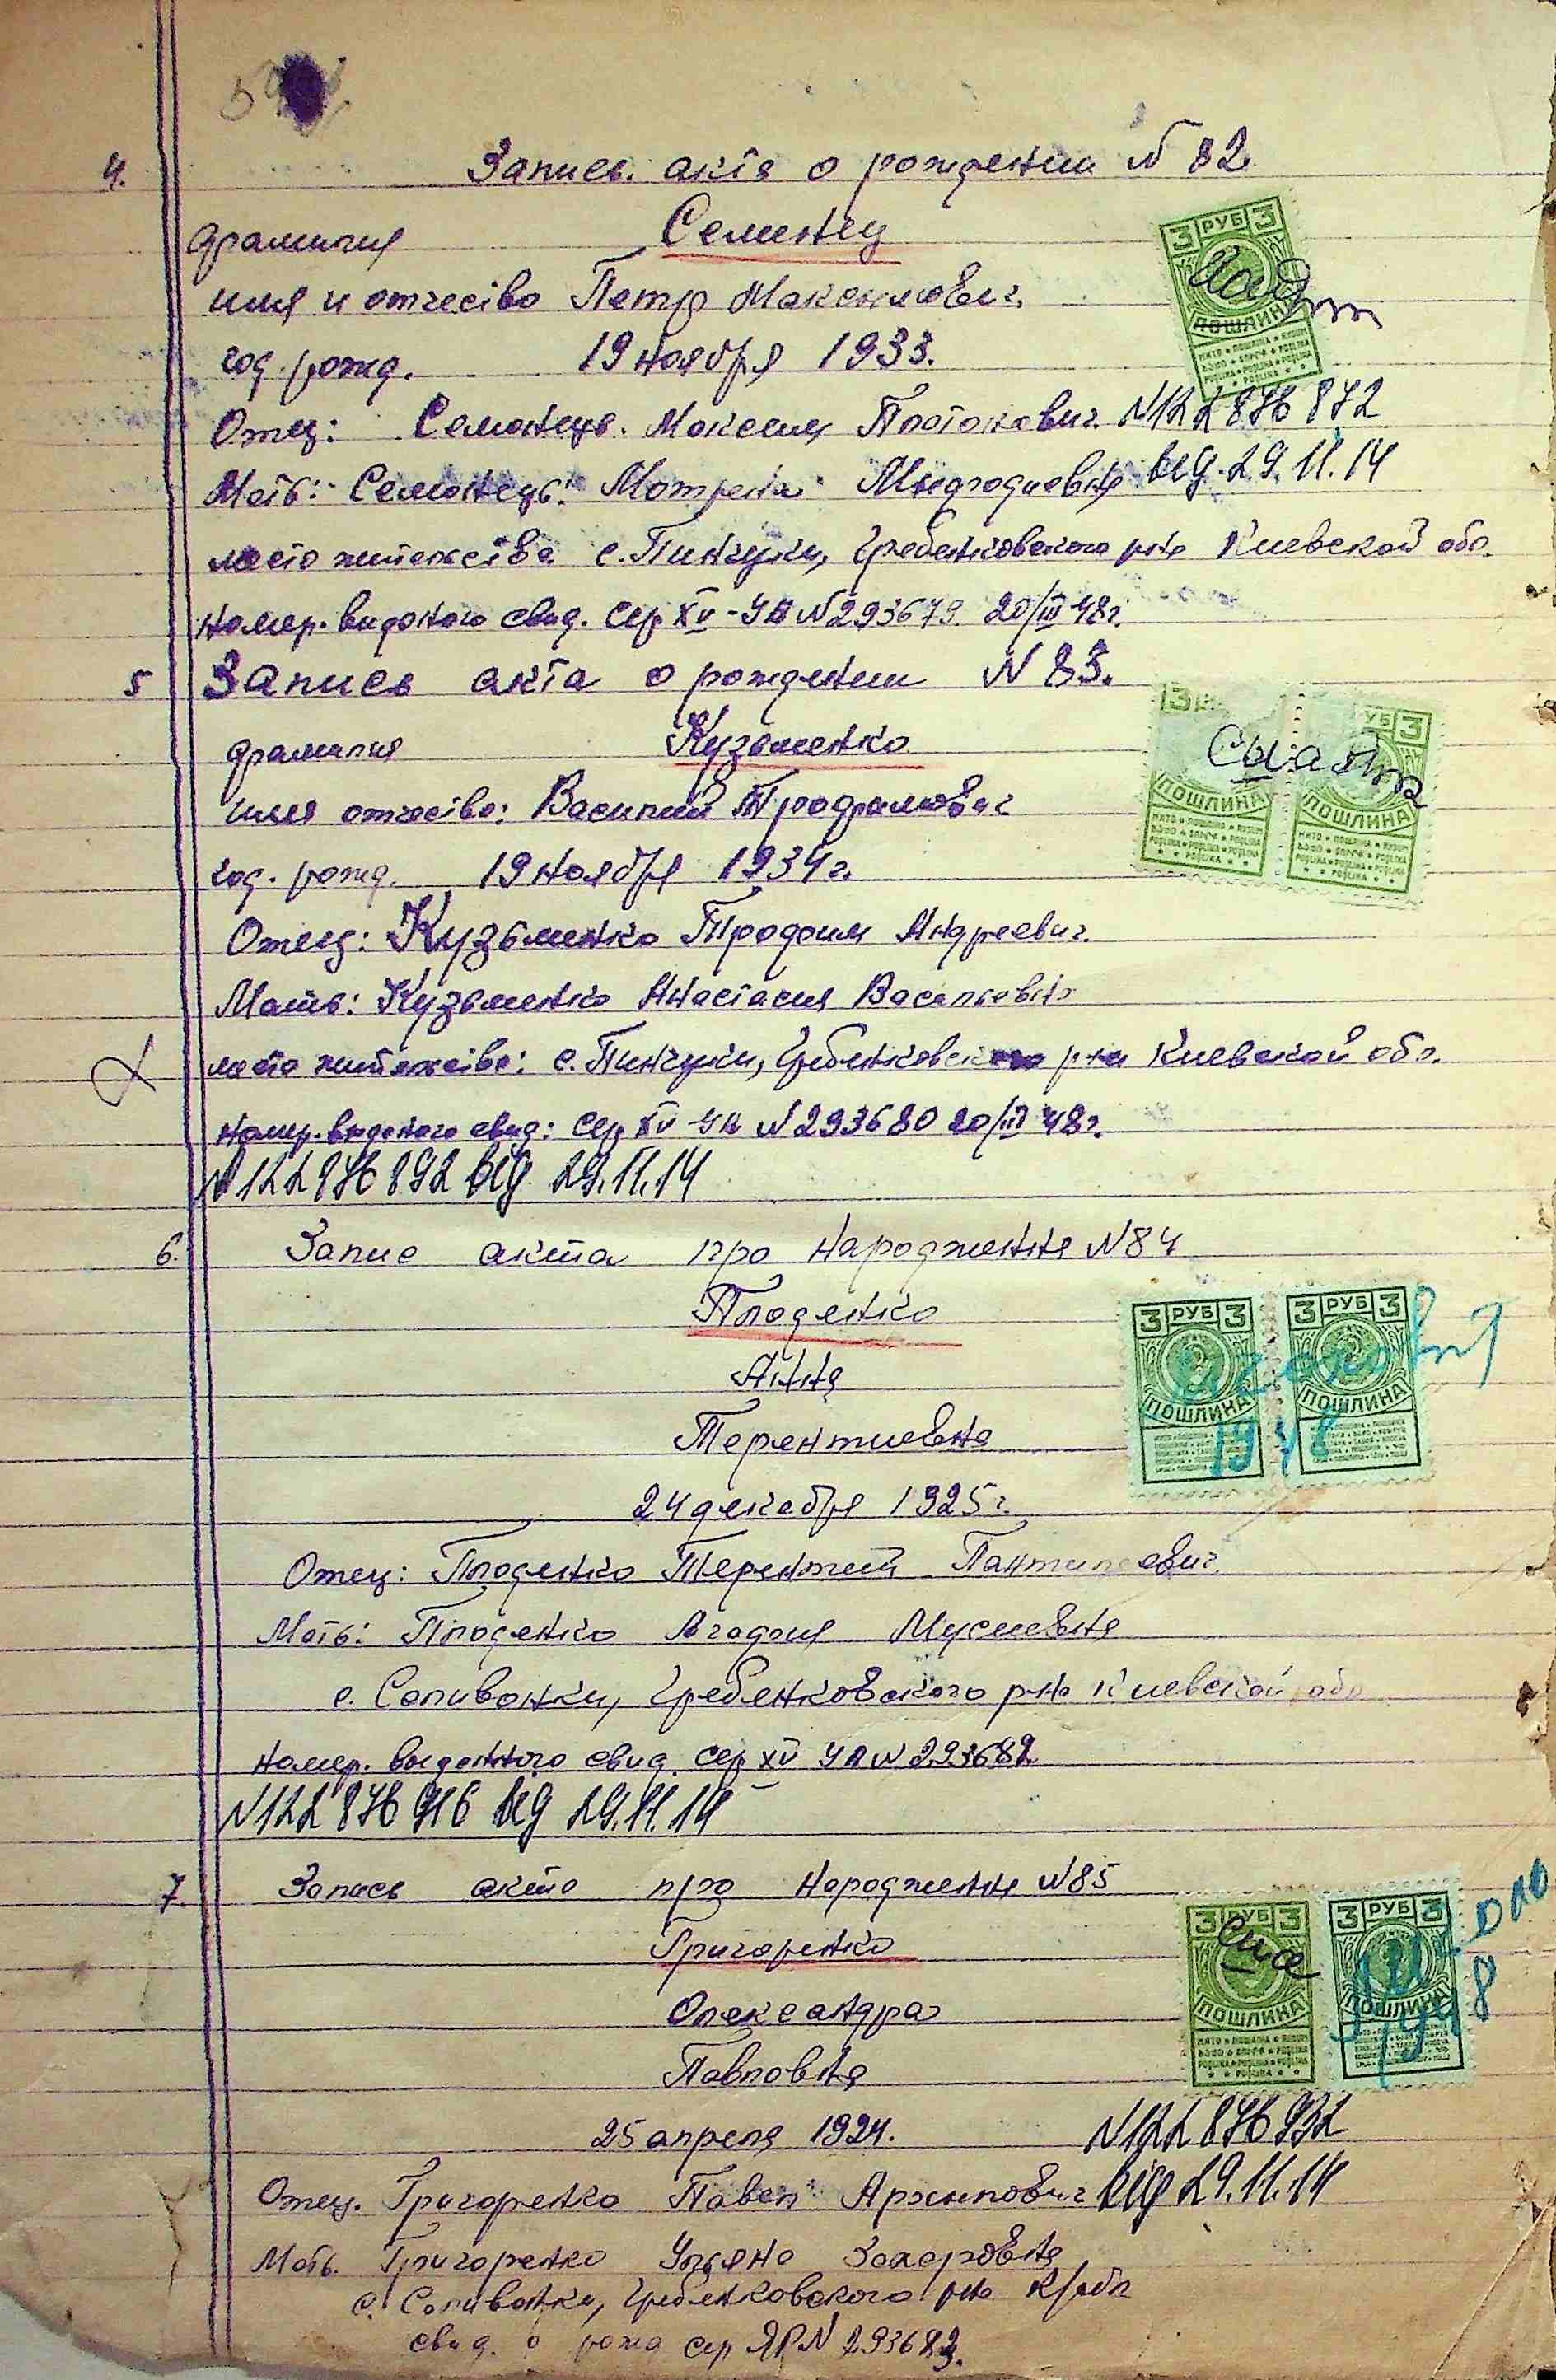 4.
Запись акта о рождении N 82
фамилия Семенец
имя и отчество Петр Максимович.
год рожд. 19 ноября 1933.
Отец: Семенець Максим N 122 876 872
Мать: Семенець Мотрена від 29.11.14
место жительства с. Пинчуки, Гребенковского р-на Киевской обл.
номер виданого свид. сер XV-УА N 293679 20/III 48г.
5 Запись акта о рождении N 83.
фамилия Кузьменко
имя отчество: Василий Трофимович
год. рожд. 19 ноября 1934 г.
Отец: Кузьменко Трофим Андреевич.
Мать: Кузьменко Анастасия Васильевна
место жительства: с. Пинчуки, Гребенковского р-на Киевской обл.
номер выданого свид: сер XV-УА N 293680 20/III 48г.
N 122 876 892 від 29.11.14
6. Запис акта про народження N 84
Плоденко
Анна
Терентиевна
24 декабря 1925 г.
Отец: Плоденко Терентий
Мать: Плоденко Агафия Мусиевна
с. Саливонки, Гребенковского р-на Киевской обл
номер. выданного свид. сер XV УА N 293682
N 122 876 916 від 29.11.14
7. Запись акта про народження N 85
Григоренко
Олександра
Павловна
25 апреля 1924. N 122 876 932
Отец. Григоренко Павел Архипович від 29.11.14
Мать. Григоренко Ульяна Захаровна
с. Саливонки, Гребенковского р-на К/обл
свид. о рожд сер ЯР N 293683.
3 РУБ 3
ПОШЛИНА
ПОШЛИНА
УБ 3
ПОШЛИНА
3 РУБ 3
ПОШЛИНА
3 РУБ 3
ПОШЛИНА
1948
3 РУБ 3
ПОШЛИНА
3 РУБ 3
ПОШЛИНА
1948